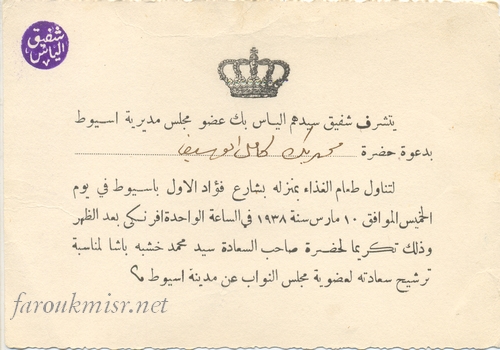 شفيق
الياس
يتشرف شفيق سيدهم الياس بك عضو مجلس مديرية اسيوط
بدعوة حضرة محمد بك كامل
لتناول طعام الغذاء بمنزله بشارع فؤاد الاول باسيوط في يوم
الخميس الموافق ١٠ مارس سنة ١٩٣٨ في الساعة الواحدة افرنكي بعد الظهر
وذلك تكريما لحضرة صاحب السعادة سيد محمد خشبه باشا لمناسبة
ترشيح سعادته لعضوية مجلس النواب عن مدينة اسيوط
faroukmisr.net